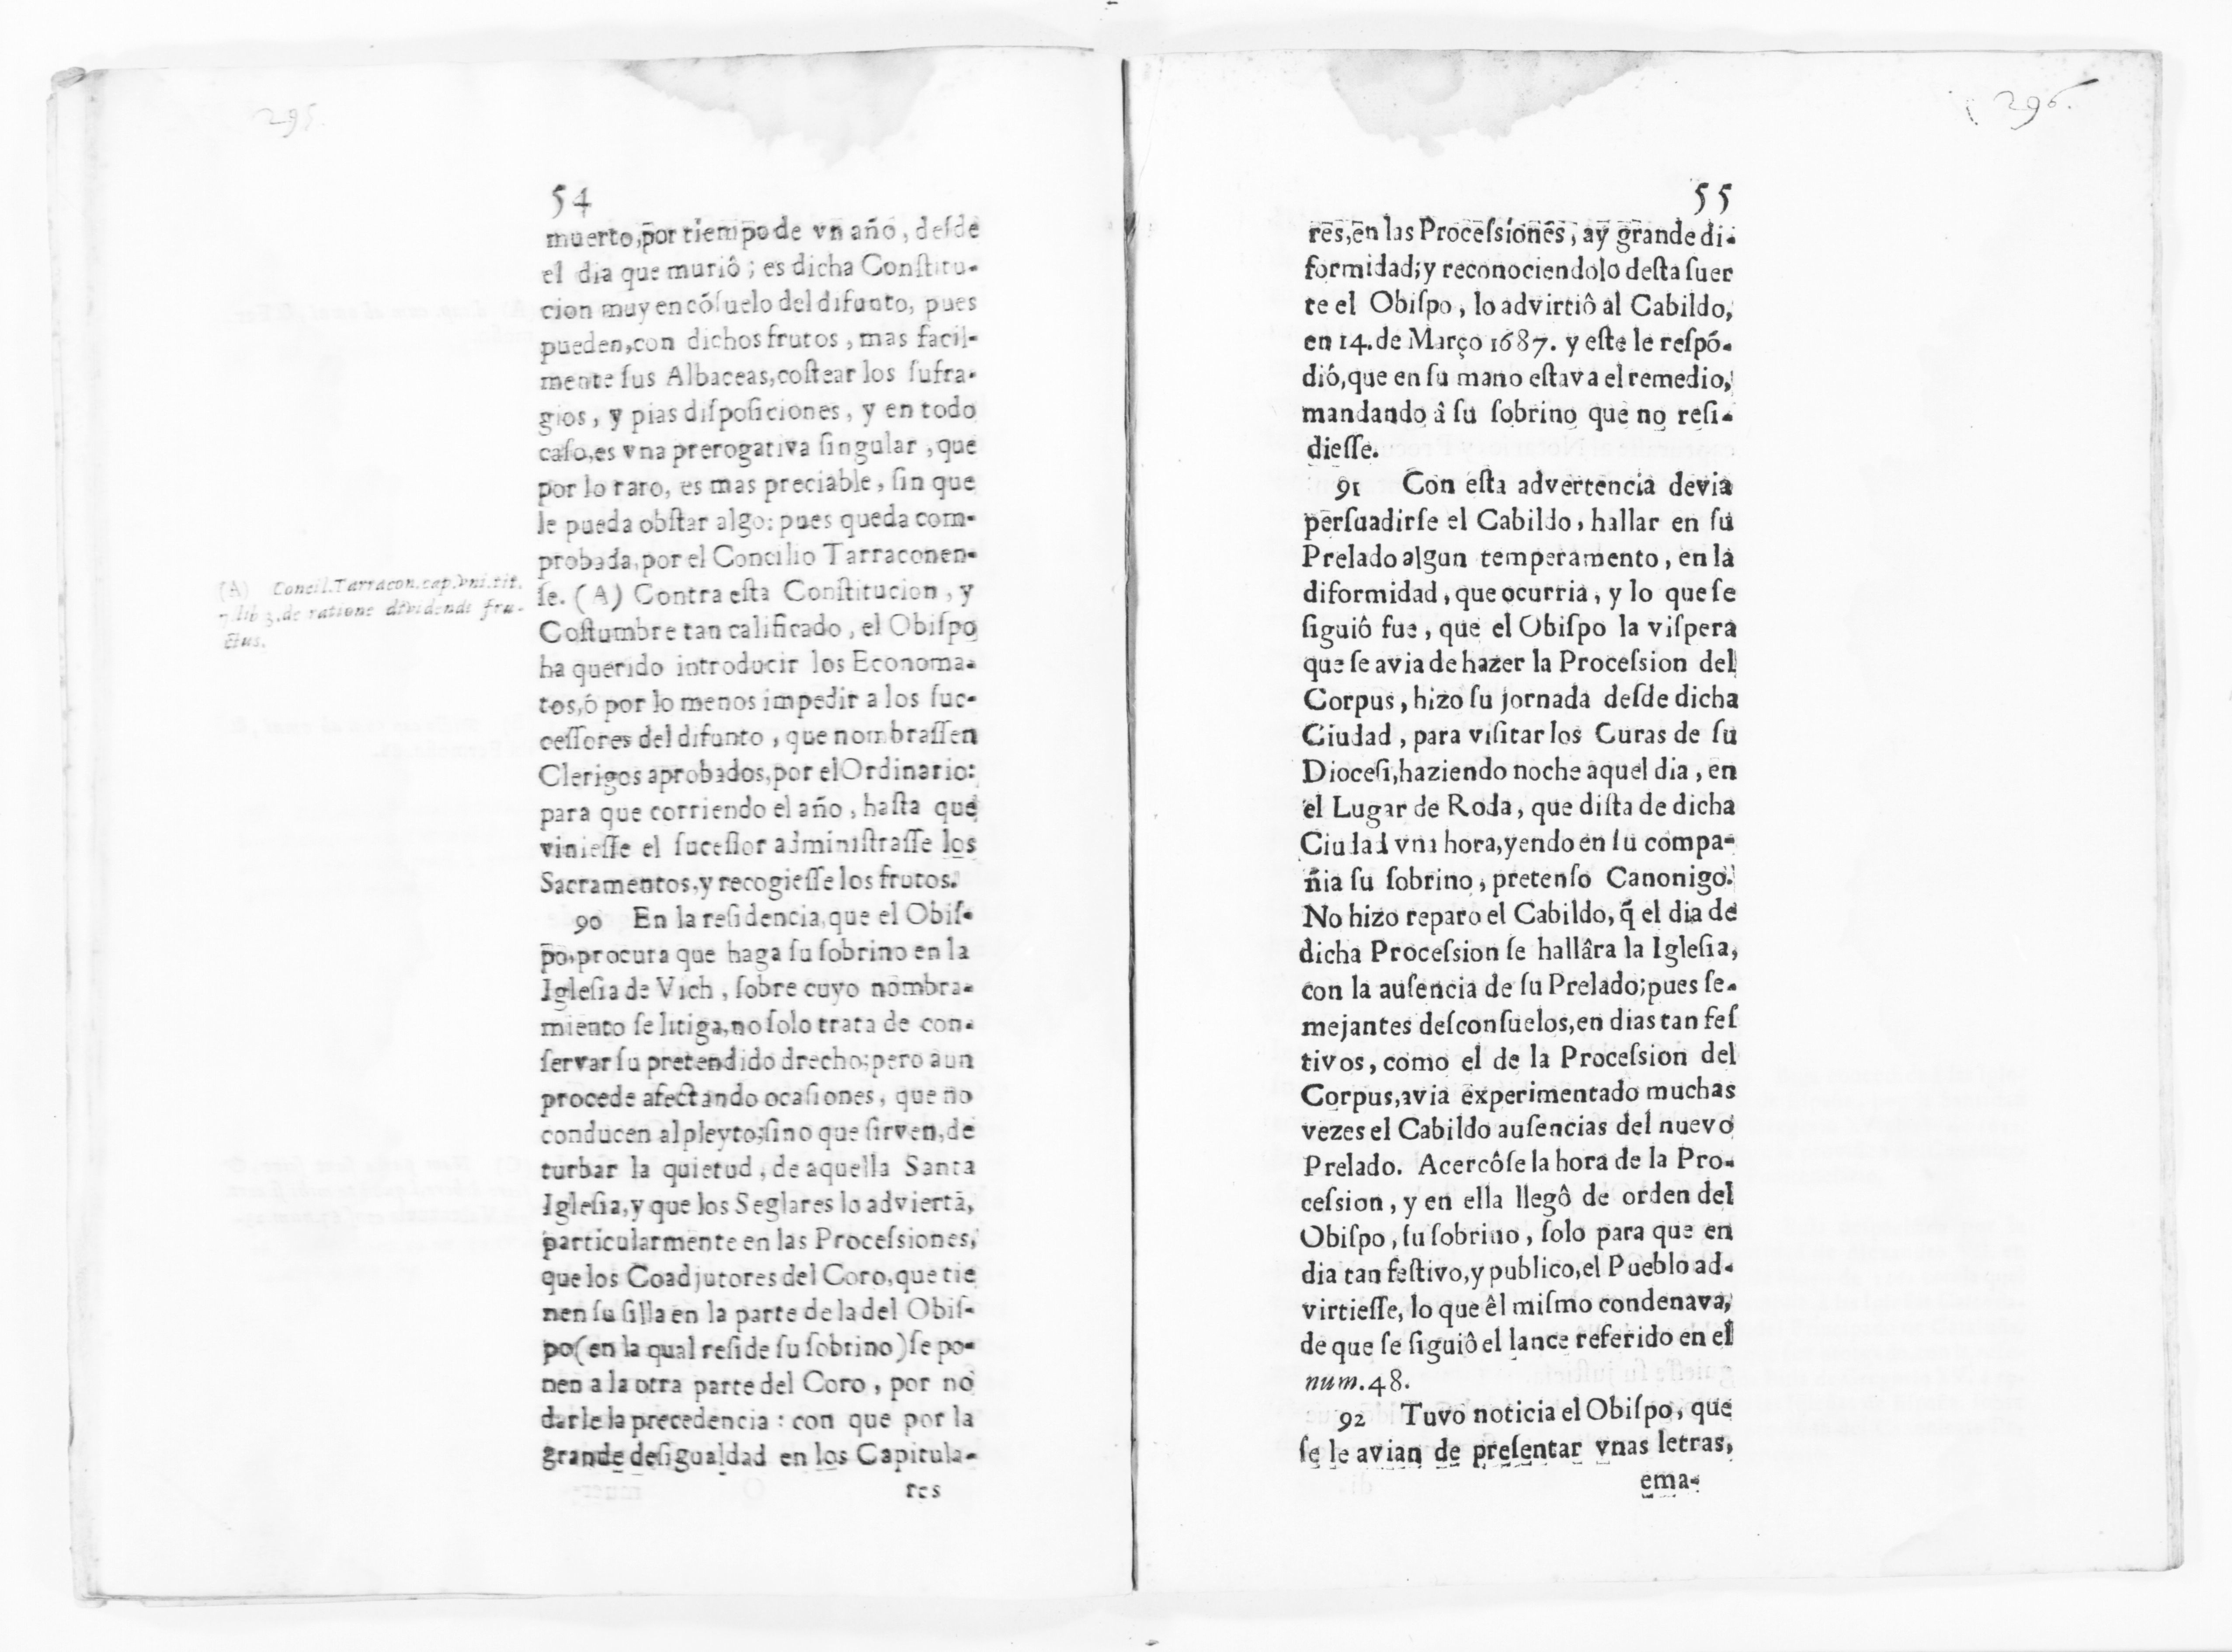 295.
54
muerto, por tiempo de vn año, deſde
el dia que muriô; es dicha Conſtitu-
cion muy en cóſuelo del difunto, pues
pueden, con dichos frutos, mas facil-
mente ſus Albaceas, coſtear los ſufra-
gios, y pias diſpoſiciones, y en todo
caſo, es vna prerogativa ſingular, que
por lo raro, es mas preciable, ſin que
le pueda obſtar algo: pues queda com-
probada, por el Concilio Tarraconen-
ſe. (A) Contra eſta Conſtitucion, y
Coſtumbre tan calificado, el Obiſpo
ha querido introducir los Economa-
tos, ó por lo menos impedir a los ſuc-
ceſſores del difunto, que nombraſſen
Clerigos aprobados, por el Ordinario:
para que corriendo el año, haſta que
vinieſſe el ſuceſſor adminiſtraſſe los
Sacramentos, y recogieſſe los frutos.
90 En la reſidencia, que el Obiſ-
po, procura que haga ſu ſobrino en la
Igleſia de Vich, ſobre cuyo nombra-
miento ſe litiga, no ſolo trata de con-
ſervar ſu pretendido drecho; pero aun
procede afectando ocaſiones, que no
conducen al pleyto; ſino que ſirven, de
turbar la quietud, de aquella Santa
Igleſia, y que los Seglares lo adviertã,
particularmente en las Proceſsiones,
que los Coadjutores del Coro, que tie
nen ſu ſilla en la parte de la del Obiſ-
po (en la qual reſide ſu ſobrino) ſe po-
nen a la otra parte del Coro, por no
darle la precedencia: con que por la
grande deſigualdad en los Capitula-
res
(A) Concil. Tarracon. cap. vni. tit.
7. lib 3. de ratione dividendi fru-
ctus.
296.
55
res, en las Proceſsiones, ay grande di-
formidad; y reconociendolo deſta ſuer
te el Obiſpo, lo advirtiô al Cabildo,
en 14. de Março 1687. y eſte le reſpó-
dió, que en ſu mano eſtava el remedio,
mandando â ſu ſobrino que no reſi-
dieſſe.
91 Con eſta advertencia devia
perſuadirſe el Cabildo, hallar en ſu
Prelado algun temperamento, en la
diformidad, que ocurria, y lo que ſe
ſiguiô fue, que el Obiſpo la viſpera
que ſe avia de hazer la Proceſsion del
Corpus, hizo ſu jornada deſde dicha
Ciudad, para viſitar los Curas de ſu
Dioceſi, haziendo noche aquel dia, en
el Lugar de Roda, que diſta de dicha
Ciudad vna hora, yendo en ſu compa-
ñia ſu ſobrino, pretenſo Canonigo.
No hizo reparo el Cabildo, q̃ el dia de
dicha Proceſsion ſe hallâra la Igleſia,
con la auſencia de ſu Prelado; pues ſe-
mejantes deſconſuelos, en dias tan feſ
tivos, como el de la Proceſsion del
Corpus, avia experimentado muchas
vezes el Cabildo auſencias del nuevo
Prelado. Acercôſe la hora de la Pro-
ceſsion, y en ella llegô de orden del
Obiſpo, ſu ſobrino, ſolo para que en
dia tan feſtivo, y publico, el Pueblo ad-
virtieſſe, lo que êl miſmo condenava,
de que ſe ſiguiô el lance referido en el
num. 48.
92 Tuvo noticia el Obiſpo, que
ſe le avian de preſentar vnas letras,
ema-